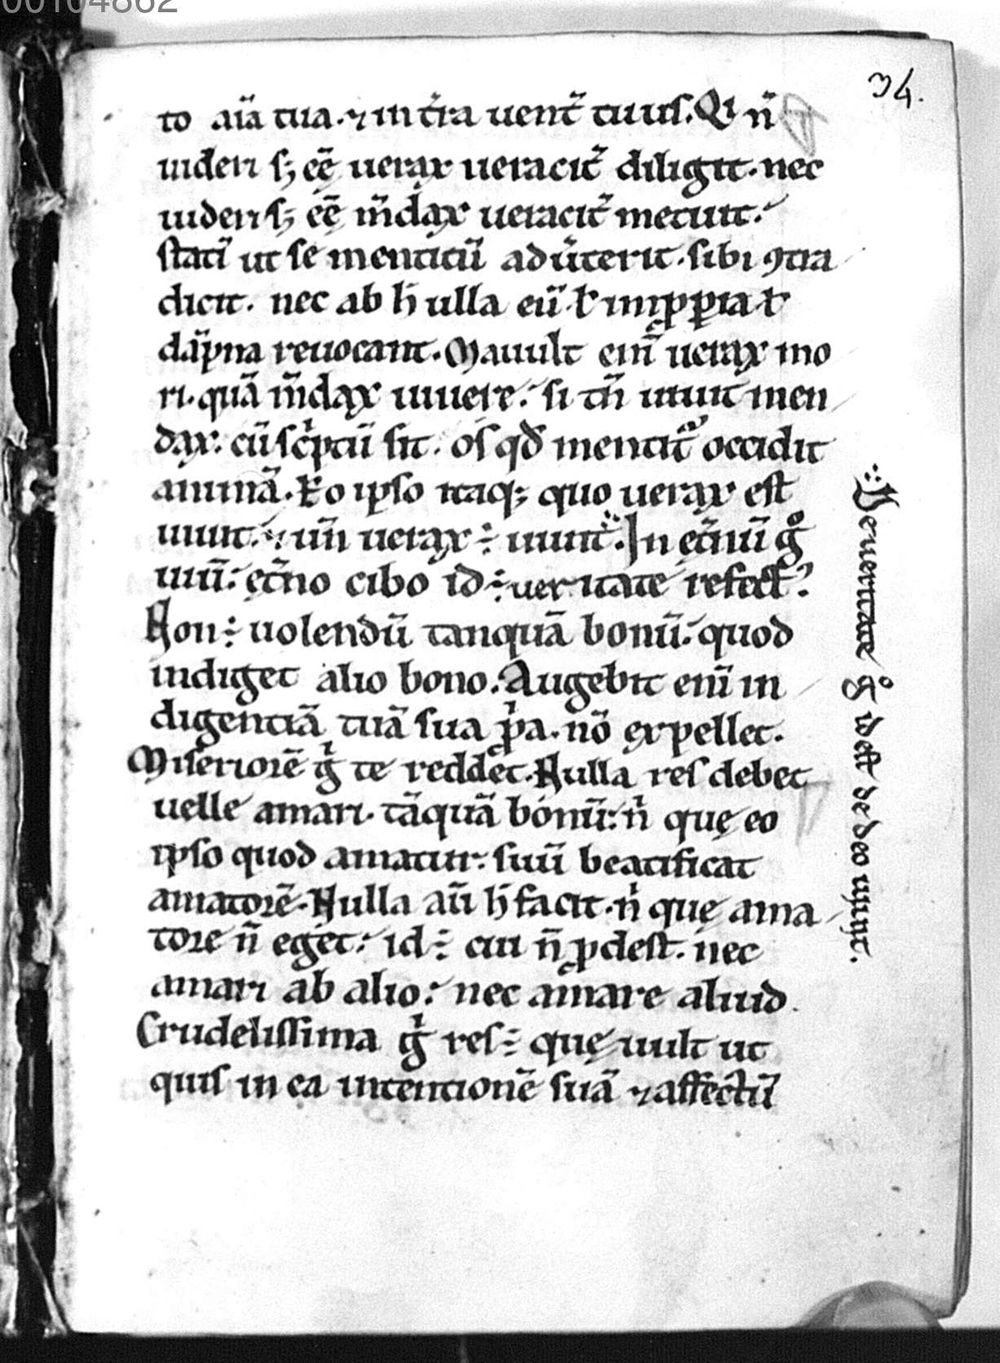 00104862
34.
to aīa tua. ⁊ in t̄ra uent̄ tuus. Qi n̄
uideri sꝫ eē uerax ueracit̄ diligit. nec
uideri sꝫ eē m̄dax ueracit̄ metuit.
statī ut se mentitū adu̅terit. sibi ꝯtra
dicit. nec ab h̄ ulla eū. ł impꝓpia ł
dāpna reuocant. Mauult enī uerax mo
ri. quā m̄dax uiuere. si tn̄ uiuit men
dax. cū sc̄ptū sit. os qd̄ mentit᷑ occidit
animā. Eo ipso itaqꝫ quo uerax est
uiuit. ⁊ un̄ uerax ÷ uiuit. In et̄nū gͦ
uiū. et̄no cibo id ÷ ueritate refect᷑.
Non ÷ uolendū tanquā bonū. quod
indiget alio bono. Augebit enī in
digentiā tuā sua ꝓpa. nō expellet.
Miseriorē gͥ te reddet. Nulla res debet
uelle amari. tāquā bonū. nͥ quę eo
ipso quod amatur. suū beatificat
amatorē. Nulla aū h̄ facit. nͥ quę ama
tore n̄ eget. id ÷ cui n̄ ꝓdest. nec
amari ab alio. nec amare aliud.
Crudelissima gͥ res ÷ quę uult ut
quis in ea intentionē suā ⁊ affectū
De ueritate gͦ id est de deo uiuit.